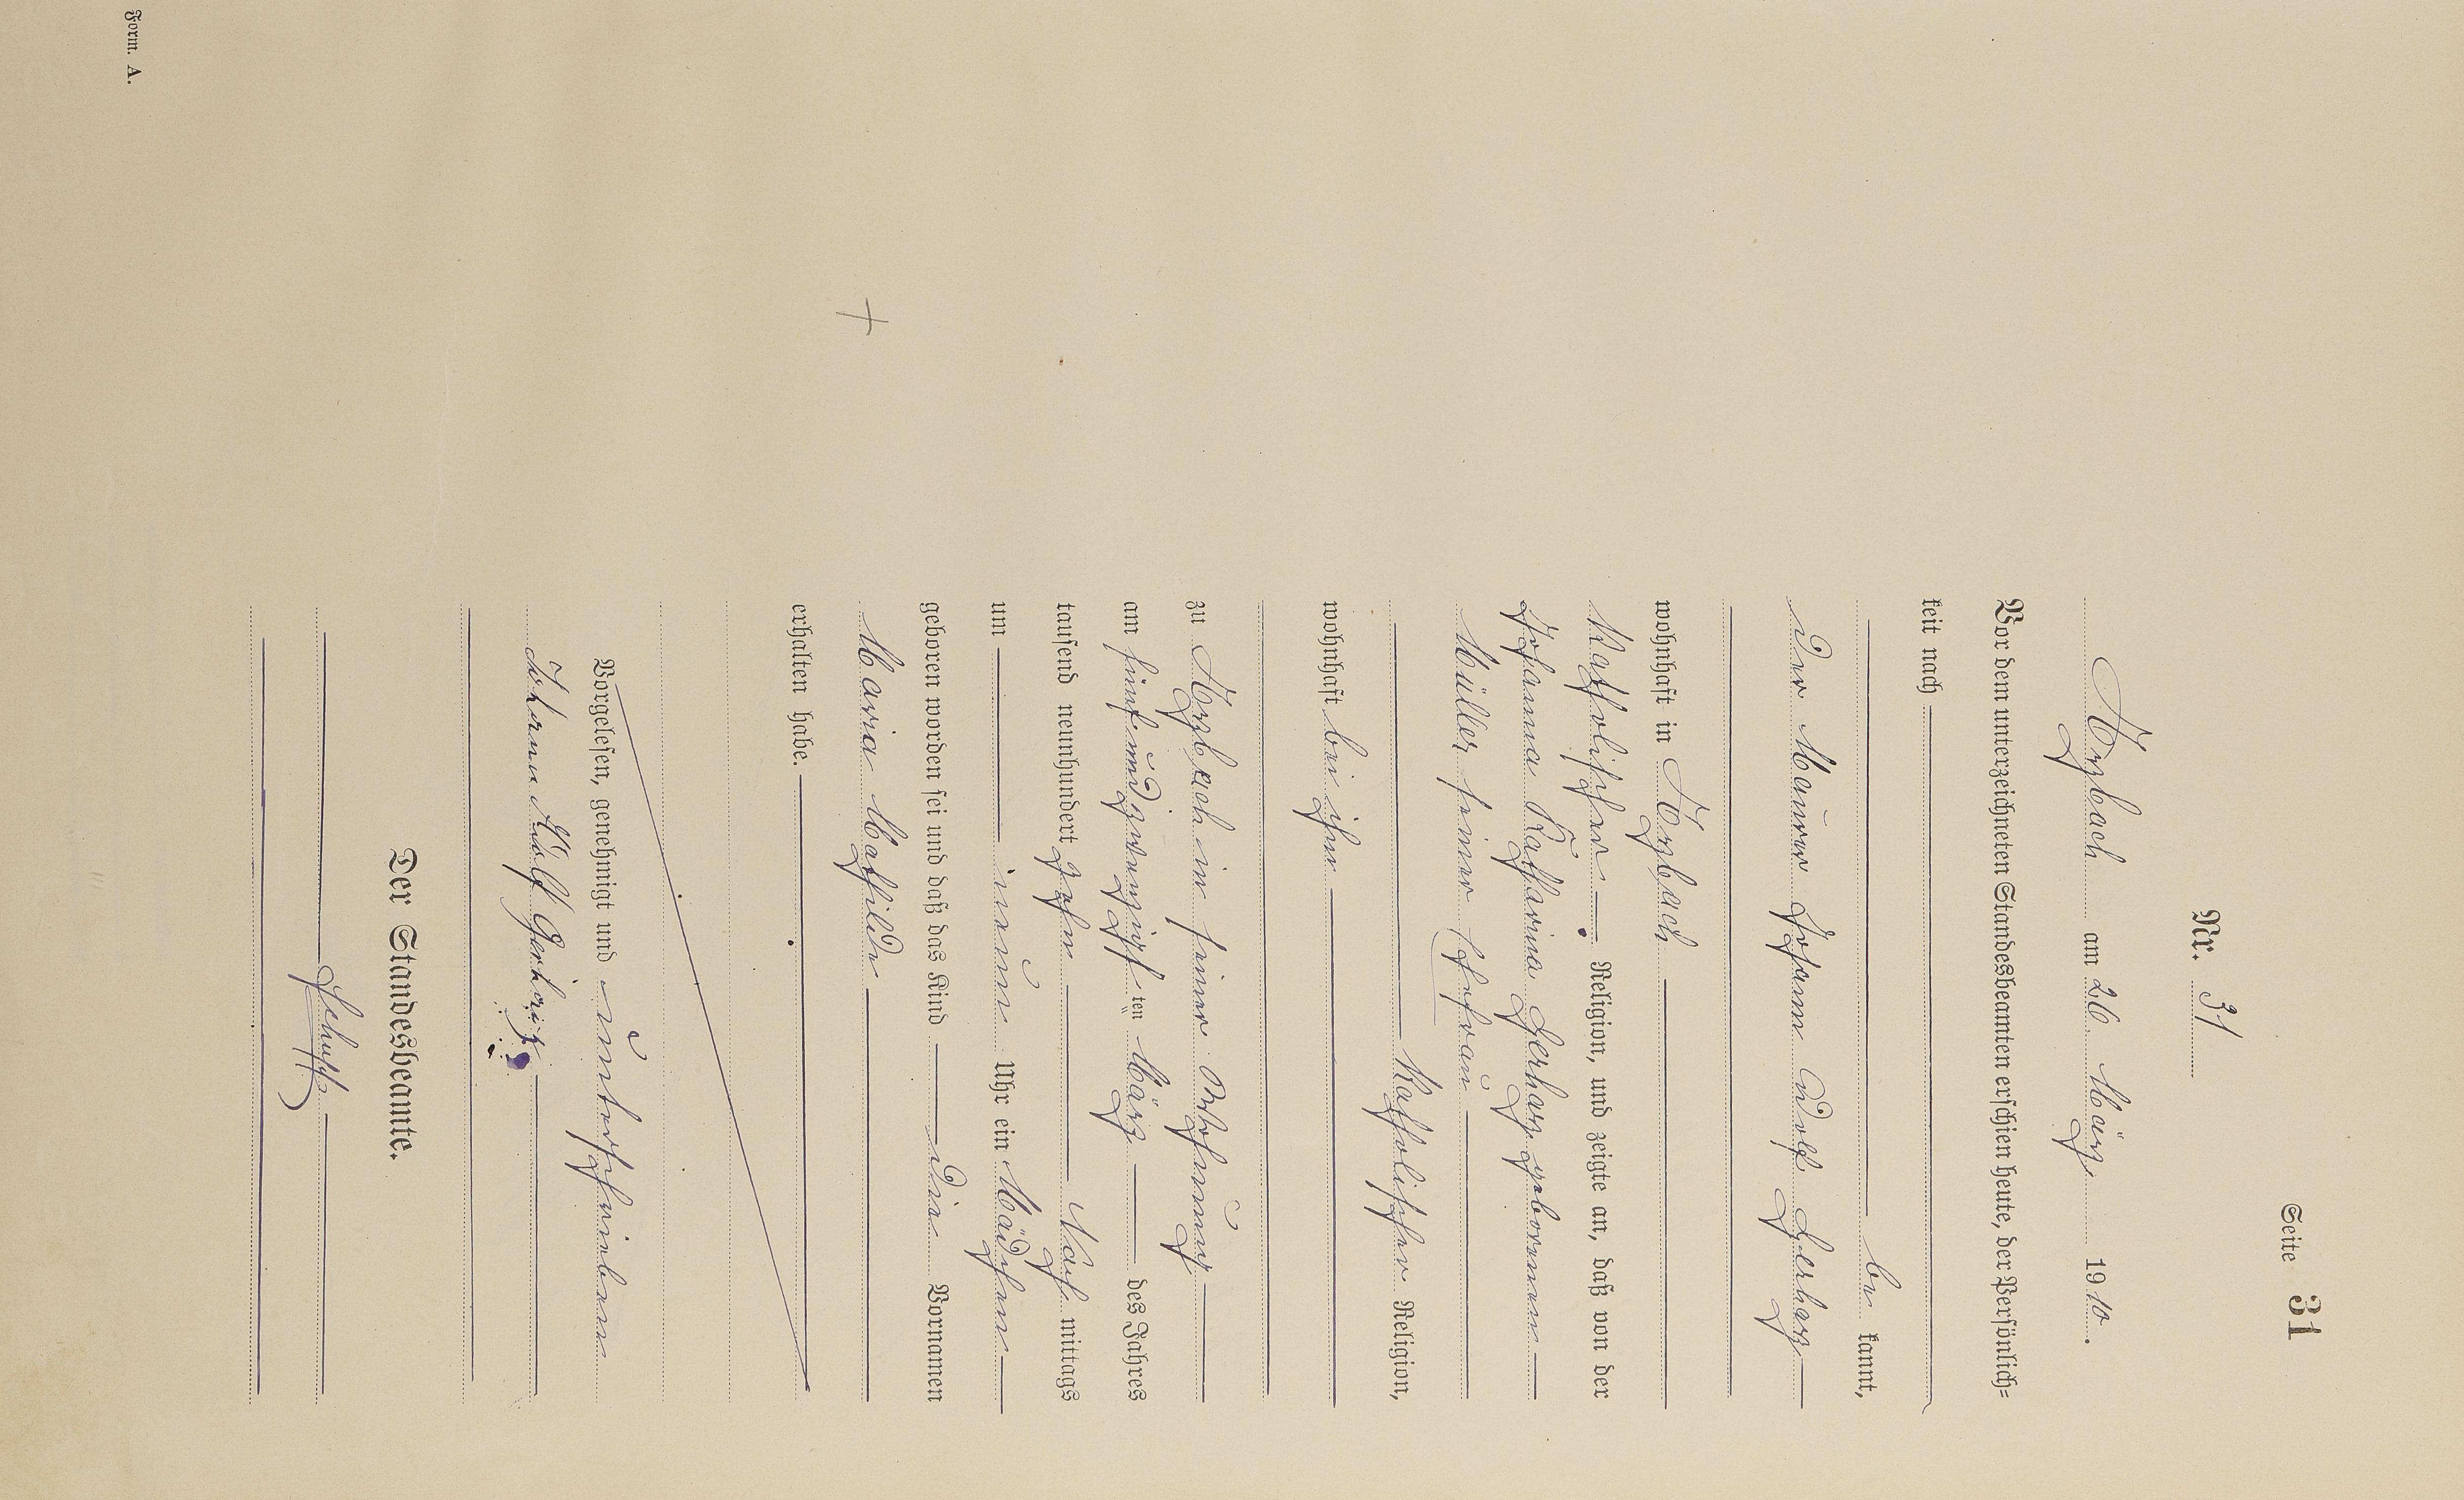 Seite 31
Nr. 31
Arzbach am 26. März 1910.
Vor dem unterzeichneten Standesbeamten erschien heute, der Persönlich=
keit nach
be kannt,
der Maurer Johann Adolf Gerharz
wohnhaft in Arzbach
Katholischer Religion, und zeigte an, daß von der
Johanna Katharina Gerharz geborenen
Müller seiner Ehefrau
Katholischer Religion,
wohnhaft bei ihm
zu Arzbach in seiner Wohnung
am fünf und zwanzigsten März des Jahres
tausend neunhundert zehn Nach mittags
um neun Uhr ein Mädchen
geboren worden sei und daß das Kind die Vornamen
Maria Mathilde
erhalten habe.
Vorgelesen, genehmigt und unterschrieben
Johann Adolf Gerharz
Der Standesbeamte.
Form. A.